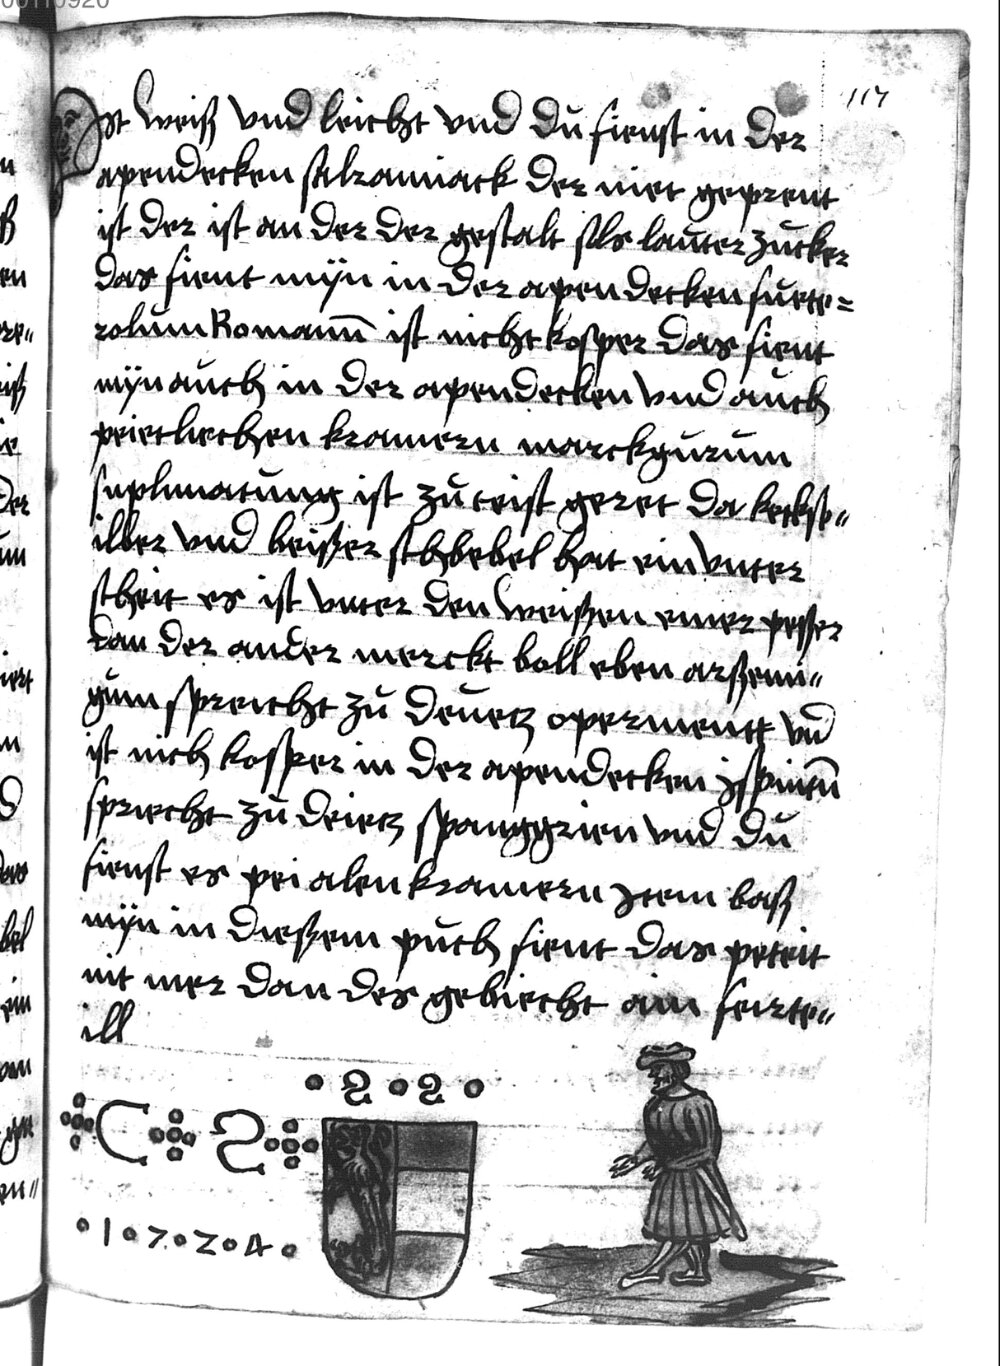 117
Ist weiß vnd leicht vnd du fienst in der
apendecken salramiack der niet geprent
ist der ist an der der gestalt sls lauter zucker
das fient myn in der apendecken fuete=
rolum Romanũ ist nicht kosper das fient
myn auch in der apendecken vnd auch
kramern marckgurum
suplimatung ist zu geret da kecksp„
ilber vnd beißer schbebel hat ein vnter
scheit es ist vnter den weißen einer peßer
dan der ander merckt boll eben arßeni„
gum spreicht zu deuetz operment vnd
ist nich kosper in der apendecken
spriecht zu deietz spanggrien vnd du
fienst es pei alen kramern item baß
myn in dießem puch fient das peteit
nit mer dan des gebiecht ain ferte„
ill
·2·2·
C S
·1·7·2·4·